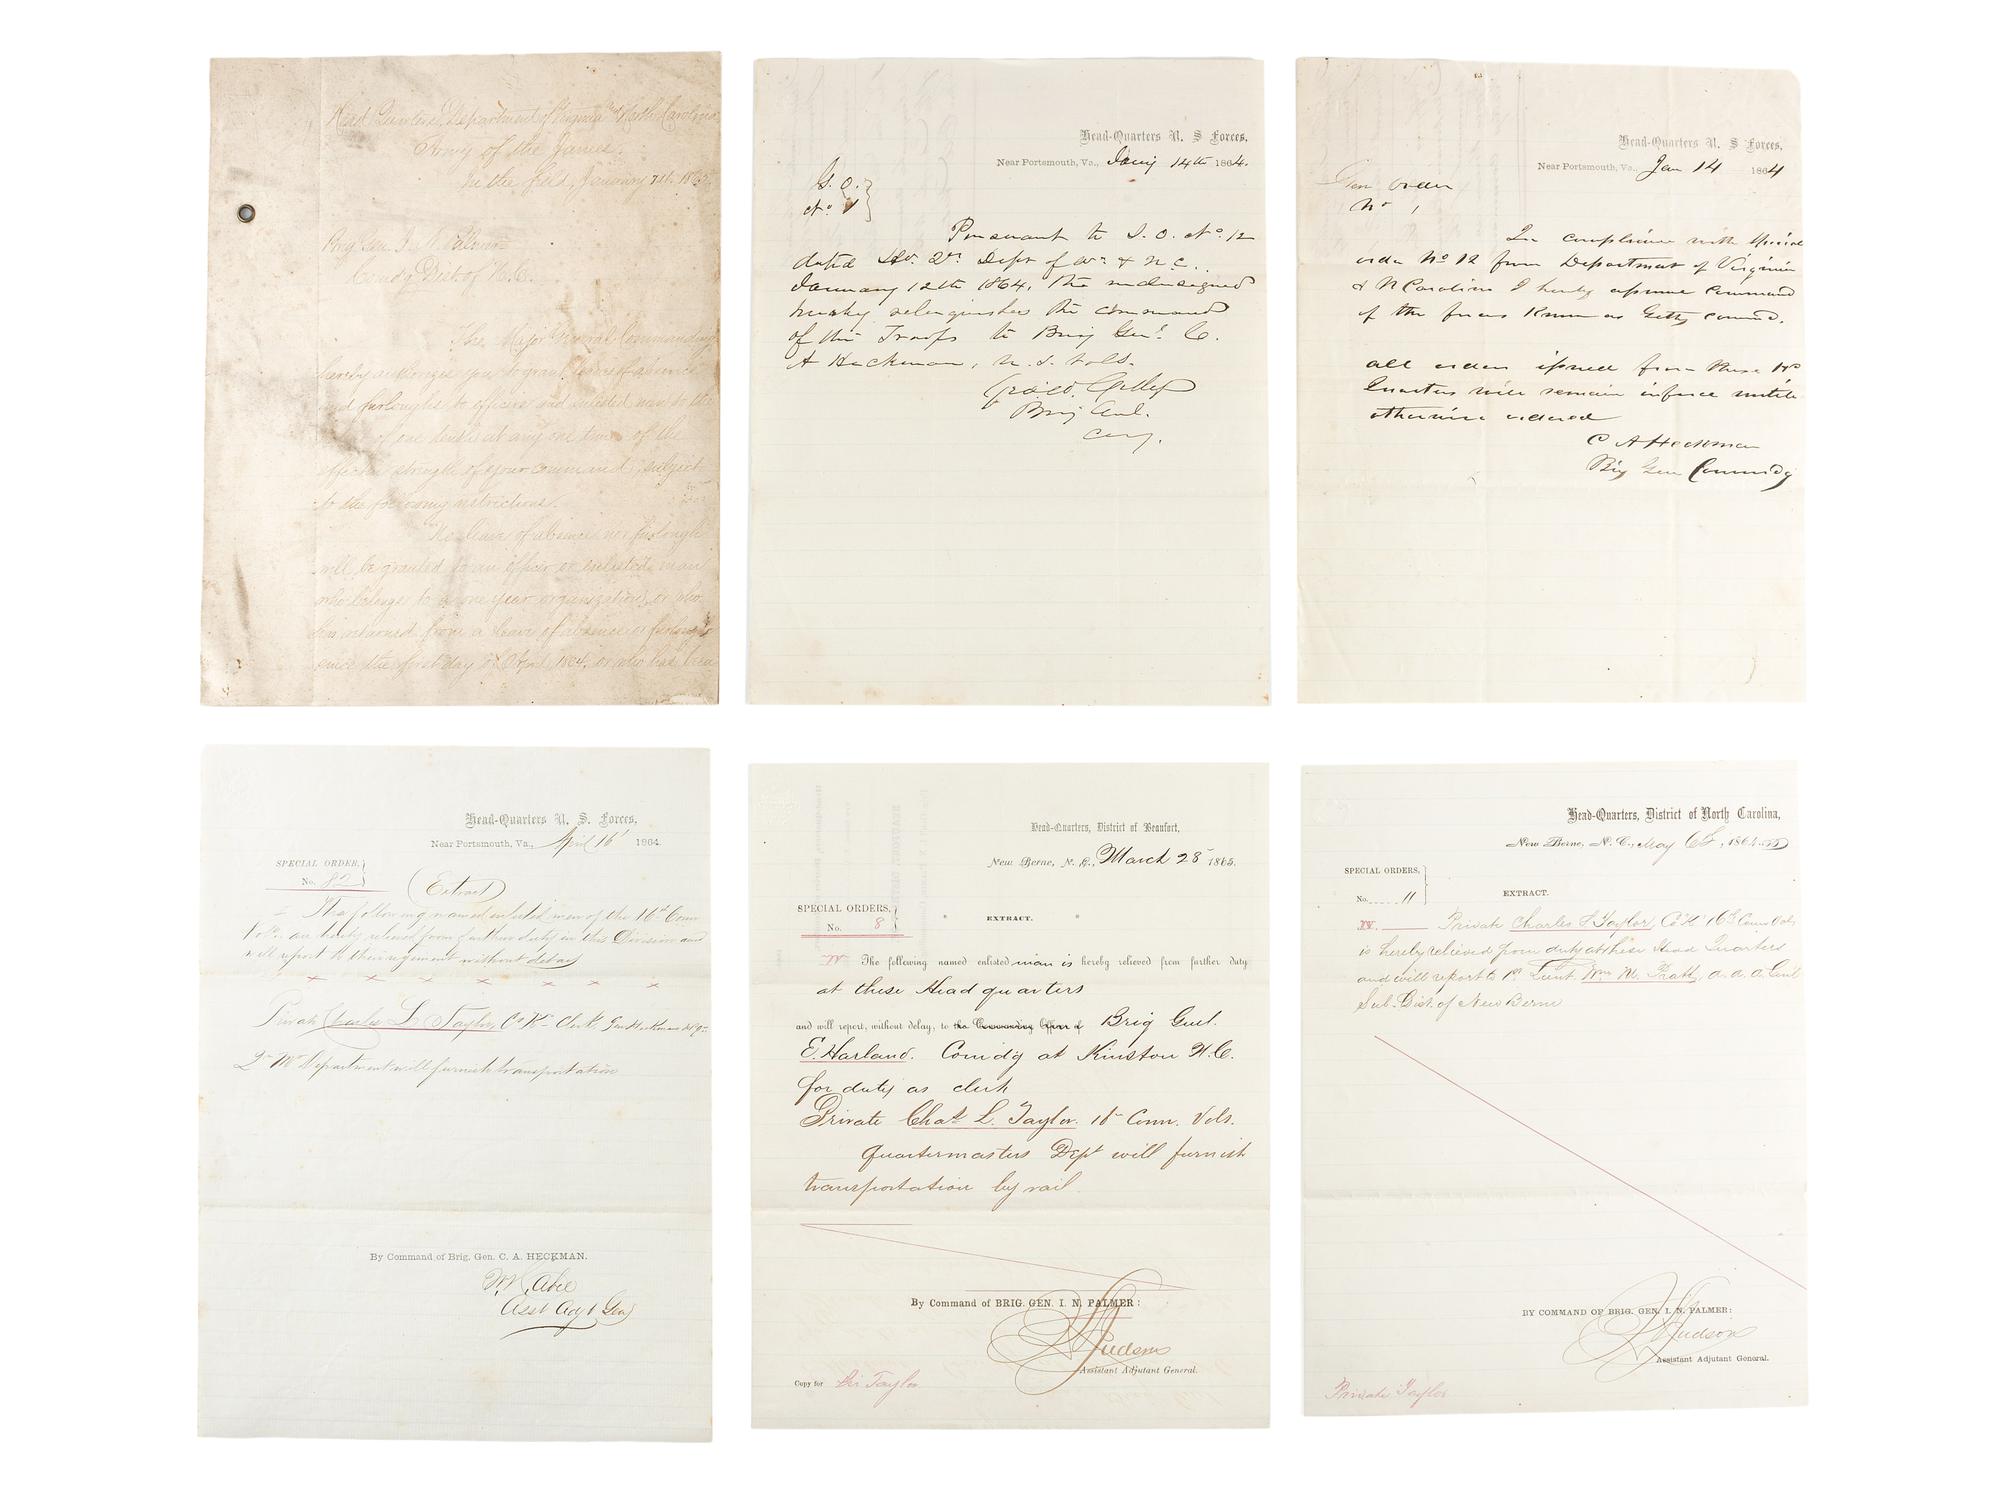 Head Quarters, Department of Virginia and North Carolina
Army of the James.
In the field, January 7th 1865
Brig Gen. I. N. Palmer
Comdg Dist of N.C.
The Major General Commanding
hereby authorizes you to grant leaves of absence
and furloughs to officers and enlisted men to the
of one tenth at any one time of the
effective strength of your command, subject
to the following instructions.
No leave of absence nor furlough
will be granted to an officer or enlisted man
who belongs to a one year organization, or who
has returned from a leave of absence or furlough
since the first day of April 1864, or who has been
Head-Quarters U. S Forces,
Near Portsmouth, Va., Jany 14th 1864.
G. O.
No. 1
Pursuant to S. O. No. 12
dated Hd. Qrs. Dept of Va & N.C.
January 12th 1864, the undersigned
hereby relinquishes the command
of the Troops to Brig Genl C.
A Heckman, U. S. Vols.
Geo. W. Getty
Brig Genl.
Comg.
Head-Quarters U. S Forces,
Near Portsmouth, Va., Jan 14 1864
Gen order
No 1
In compliance with Special
order No 12 from Department of Virginia
& N Carolina I hereby assume command
of the forces known as Gettys comnd.
all orders issued from these Hd
Quarters will remain in force until
otherwise ordered
C A Heckman
Brig Gen Commdg
Head-Quarters U. S. Forces,
Near Portsmouth, Va., April 16th 1864.
SPECIAL ORDER,
No. 82
(Extract)
I The following named enlisted men of the 16th Conn
Vols. are hereby relieved from further duty in this Division and
will report to their regiment without delay
x x x x x x
Private Charles L Taylor, Co K Clerk, Gen Heckman
Qr Mr Department will furnish transportation
By Command of Brig. Gen. C. A. HECKMAN.
Abel
Asst Adjt Gen
Head-Quarters, District of Beaufort,
New Berne, N. C., March 28 1865.
SPECIAL ORDERS,
No. 8
* EXTRACT. *
The following named enlisted man is hereby relieved from further duty
at these Head quarters
and will report, without delay, to the Commanding Officer of Brig Genl.
E. Harland. Comd'g at Kinston N.C.
for duty as clerk
Private Chas L. Taylor. 16 Conn. Vols.
Quartermasters Dept will furnish
transportation by rail
By Command of BRIG. GEN. I. N. PALMER:
Judson
Assistant Adjutant General.
Copy for Taylor
Head-Quarters, District of North Carolina,
New Berne, N. C., May 6th, 1864
SPECIAL ORDERS,
No. 11
EXTRACT.
IV. Private Charles L Taylor, Co "K" 16th Conn Vols
is hereby relieved from duty at these Head Quarters
and will report to 1st Lieut Wm M. Pratt, a. a. a. Genl
Sub-Dist. of New Berne
BY COMMAND OF BRIG. GEN. I. N. PALMER:
Judson
Assistant Adjutant General.
Private Taylor